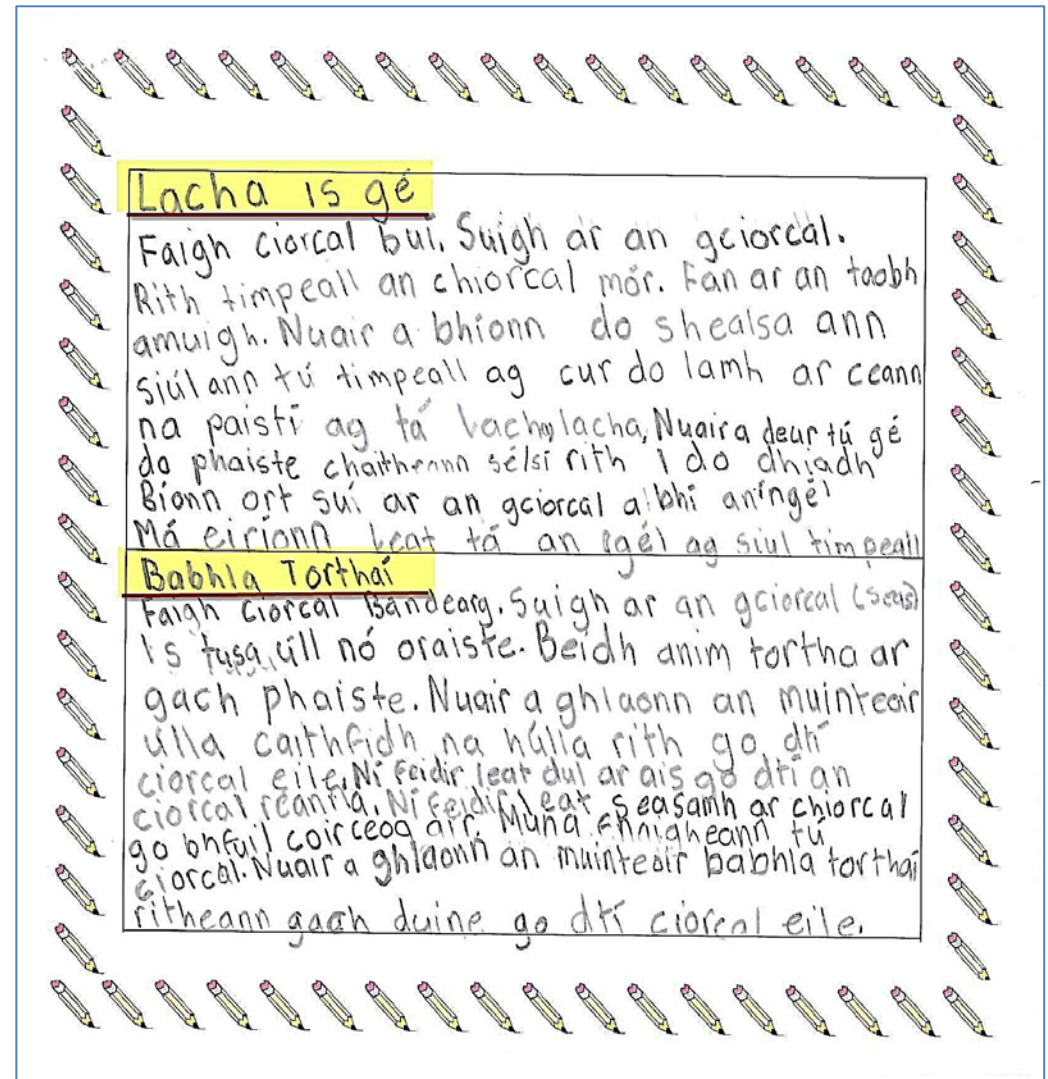 Lacha is gé
Faigh ciorcal buí. Suigh ar an gciorcal.
Rith timpeall an chiorcal mór. Fan ar an taobh
amuigh. Nuair a bhíonn do shealsa ann
siúlann tú timpeall ag cur do lamh ar ceann
na paistí ag tá lacha, Nuair a deur tú gé
do phaiste chaitheann sé/sí rith i do dhiadh
Bíonn ort suí ar an gciorcal a bhí
Má eiríonn leat tá an ag siul timpeall
Babhla Torthaí
Faigh Ciorcal Bándearg. Suigh ar an gciorcal (seas)
Is tusa úll nó oraiste. Beidh anim tortha ar
gach phaiste. Nuair a ghlaonn an muinteoir
úlla caithfidh na húlla rith go dtí
ciorcal eile. Ní feidir leat dul ar ais go dtí an
ciorcal ceanna. Ní feidir leat seasamh ar chiorcal
go bhfuil coirceog air. Muna tú
ciorcal. Nuair a ghlaonn an muinteoir babhla torthaí
ritheann gach duine go dtí ciorcal eile.